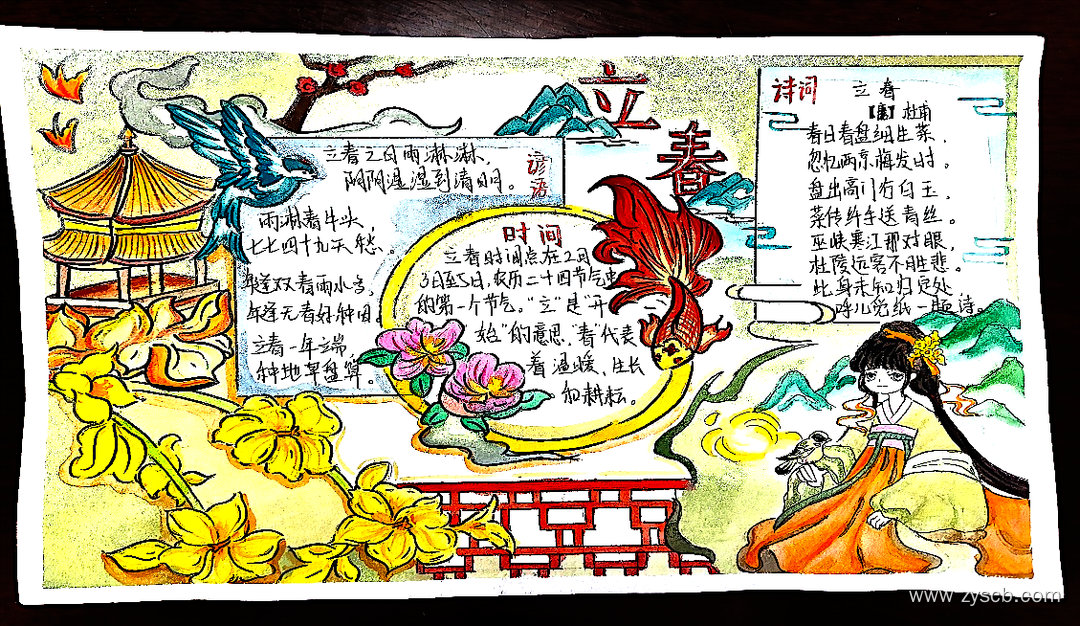 立春
谚语
立春之日雨淋淋，
阴阴湿湿到清明。
雨淋春牛头，
七七四十九天愁。
年逢双春雨水多，
年逢无春好种田。
立春一年端，
种地早盘算。
时间
立春时间点在2月
3日至5日，农历二十四节气中
的第一个节气。“立”是“开
始”的意思，“春”代表
着温暖、生长
和耕耘。
诗词
立春
【唐】杜甫
春日春盘细生菜，
忽忆两京梅发时。
盘出高门行白玉，
菜传纤手送青丝。
巫峡寒江那对眼，
杜陵远客不胜悲。
此身未知归定处，
呼儿觅纸一题诗。
www.zyscb.com